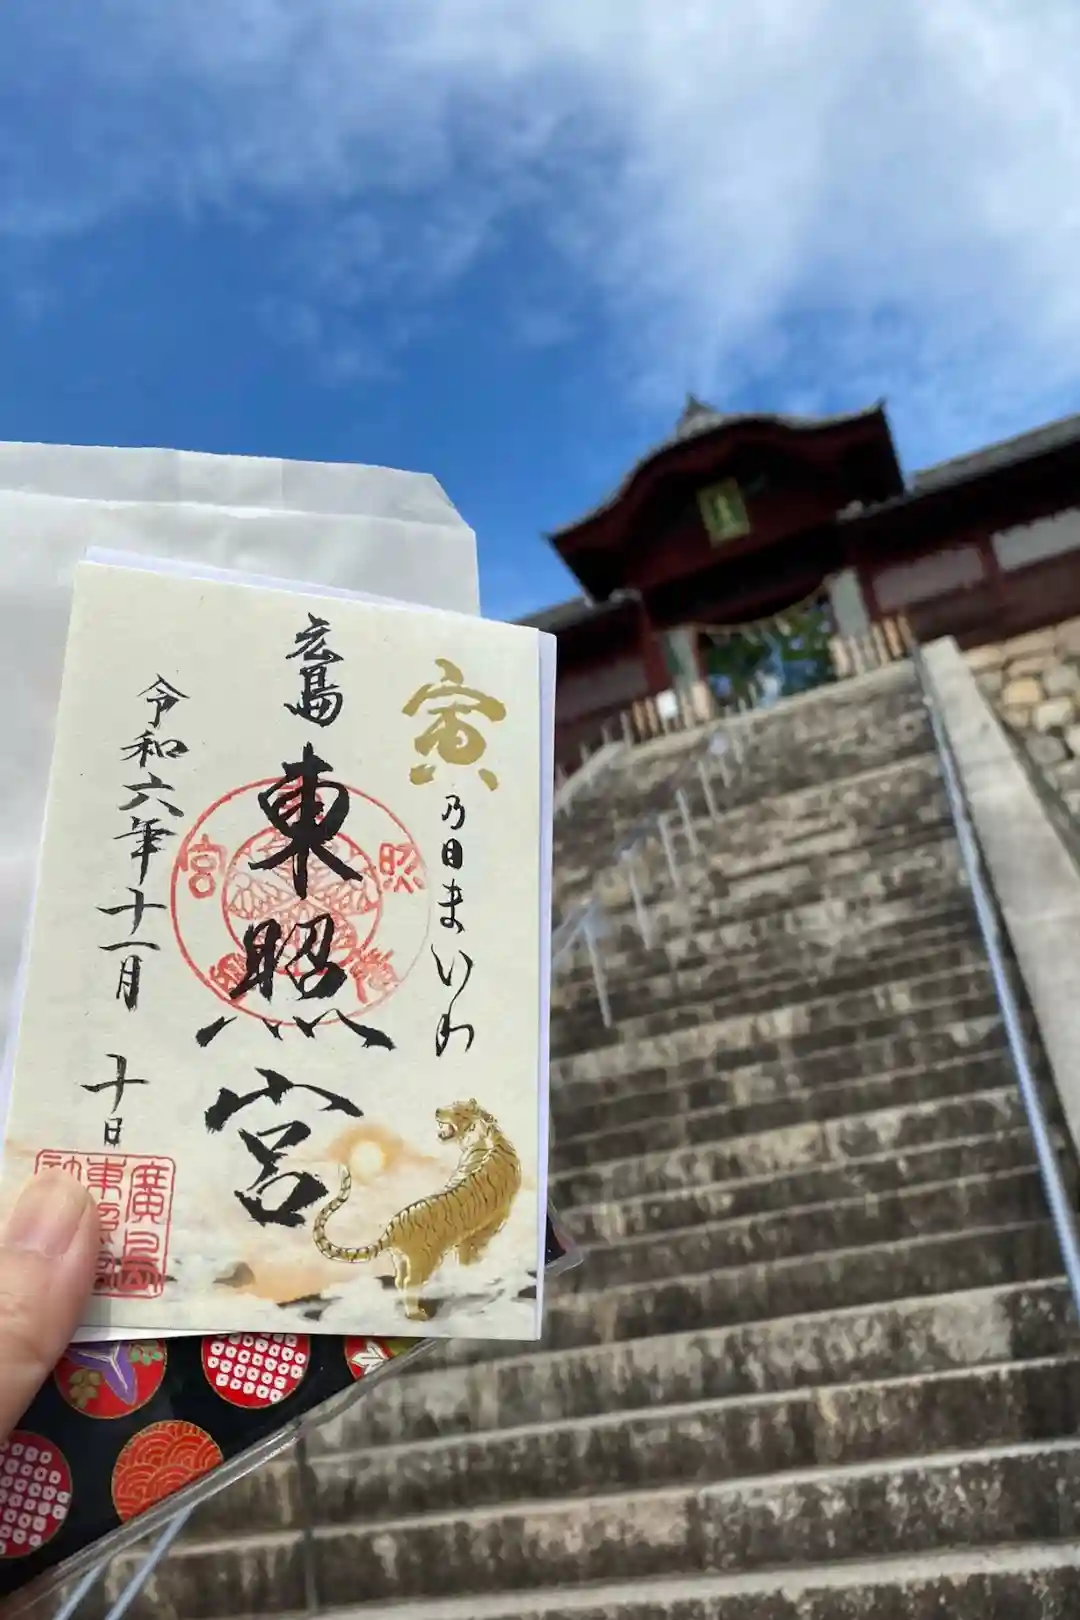 寅
乃日まいり
広島
東照宮
令和六年十一月
十日
照
宮
廣島
東照宮